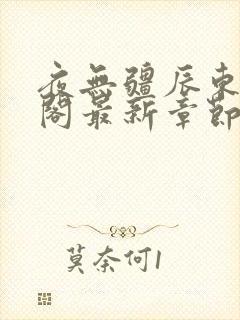 夜無疆辰東
閣最新章節
莫奈何1